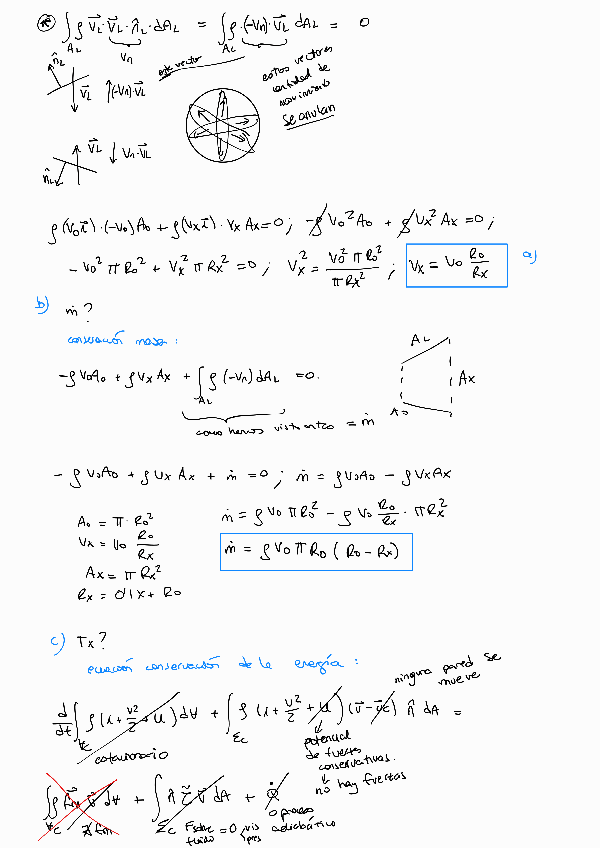 (*) ∫_{A_L} ρ \vec{V}_L · \vec{V}_L · \hat{n}_L · dA_L = ∫_{A_L} ρ · (-V_n) · \vec{V}_L dA_L = 0
V_n
este vector
estos vectores
cantidad de
movimiento
se anulan
\hat{n}_L
\vec{V}_L
(-V_n) · \vec{V}_L
\vec{V}_L
V_n · \vec{V}_L
\hat{n}_L
ρ (V_0 \vec{i}) · (-V_0) A_0 + ρ (V_x \vec{i}) · V_x A_x = 0 ; -ρ V_0² A_0 + ρ V_x² A_x = 0 ;
- V_0² π R_0² + V_x² π R_x² = 0 ; V_x² = \frac{V_0² π R_0²}{π R_x²} ; V_x = V_0 \frac{R_0}{R_x} a)
b) ṁ ?
conservación masa :
-ρ V_0 A_0 + ρ V_x A_x + ∫_{A_L} ρ (-V_n) dA_L = 0.
como hemos visto antes = ṁ
A_L
A_x
A_0
- ρ V_0 A_0 + ρ V_x A_x + ṁ = 0 ; ṁ = ρ V_0 A_0 - ρ V_x A_x
A_0 = π · R_0²
V_x = V_0 \frac{R_0}{R_x}
A_x = π R_x²
R_x = 0'1x + R_0
ṁ = ρ V_0 π R_0² - ρ V_0 \frac{R_0}{R_x} · π R_x²
ṁ = ρ V_0 π R_0 ( R_0 - R_x )
c) T_x ?
ecuación conservación de la energía :
ninguna pared se
mueve
\frac{d}{dt} ∫_{Vc} ρ ( i + \frac{v²}{2} + U ) dV + ∫_{Σc} ρ ( i + \frac{v²}{2} + U ) ( \vec{v} - \vec{v}_c ) \hat{n} dA =
estacionario
potencial
de fuerzas
conservativas.
no hay fuerzas
∫_{Vc} ρ \vec{f}_m \vec{v} dV + ∫_{Σc} \hat{n} \tilde{τ} \vec{v} dA + \dot{Q}
∄ f_m
F sobre
fluido = 0
vis
pres
0 proceso
adiabático